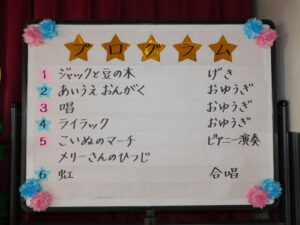 プログラム
1 ジャックと豆の木 げき
2 あいうえおんがく おゆうぎ
3 唱 おゆうぎ
4 ライラック おゆうぎ
5 こいぬのマーチ ピアニー演奏
メリーさんのひつじ
6 虹 合唱